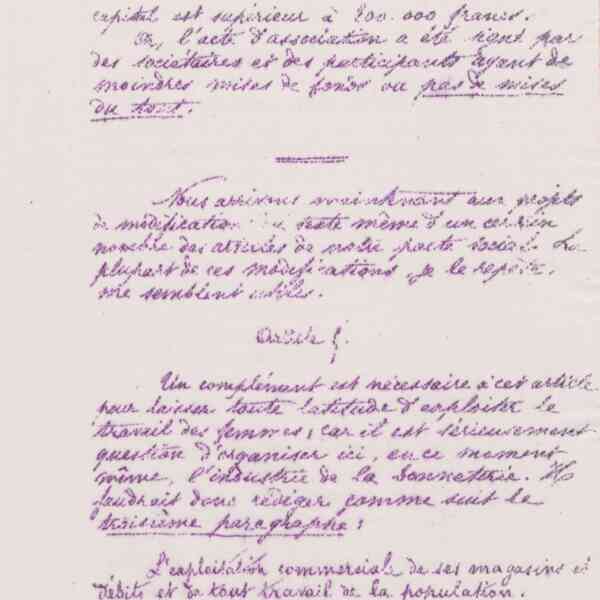 capital est supérieur à 200.000 francs.
Or, l'acte d'association a été signé par
des sociétaires et des participants ayant de
moindres mises de fonds ou pas de mises
du tout.
Nous arrivons maintenant aux projets
de modification du texte même d'un certain
nombre des articles de notre pacte social. La
plupart de ces modifications, je le répète,
me semblent utiles.
Article
Un complément est nécessaire à cet article
pour laisser toute latitude d'exploiter le
travail des femmes, car il est sérieusement
question d'organiser ici, en ce moment
même, l'industrie de la bonneterie. Il
faudrait donc rédiger comme suit le
troisième paragraphe :
L'exploitation commerciale de ses magasins et
débits et de tout travail de la population.